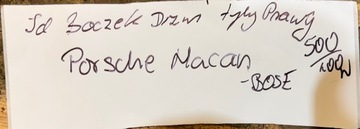 Boczek Drzwi tyły Prawy
Porsche Macan
-BOSE
500